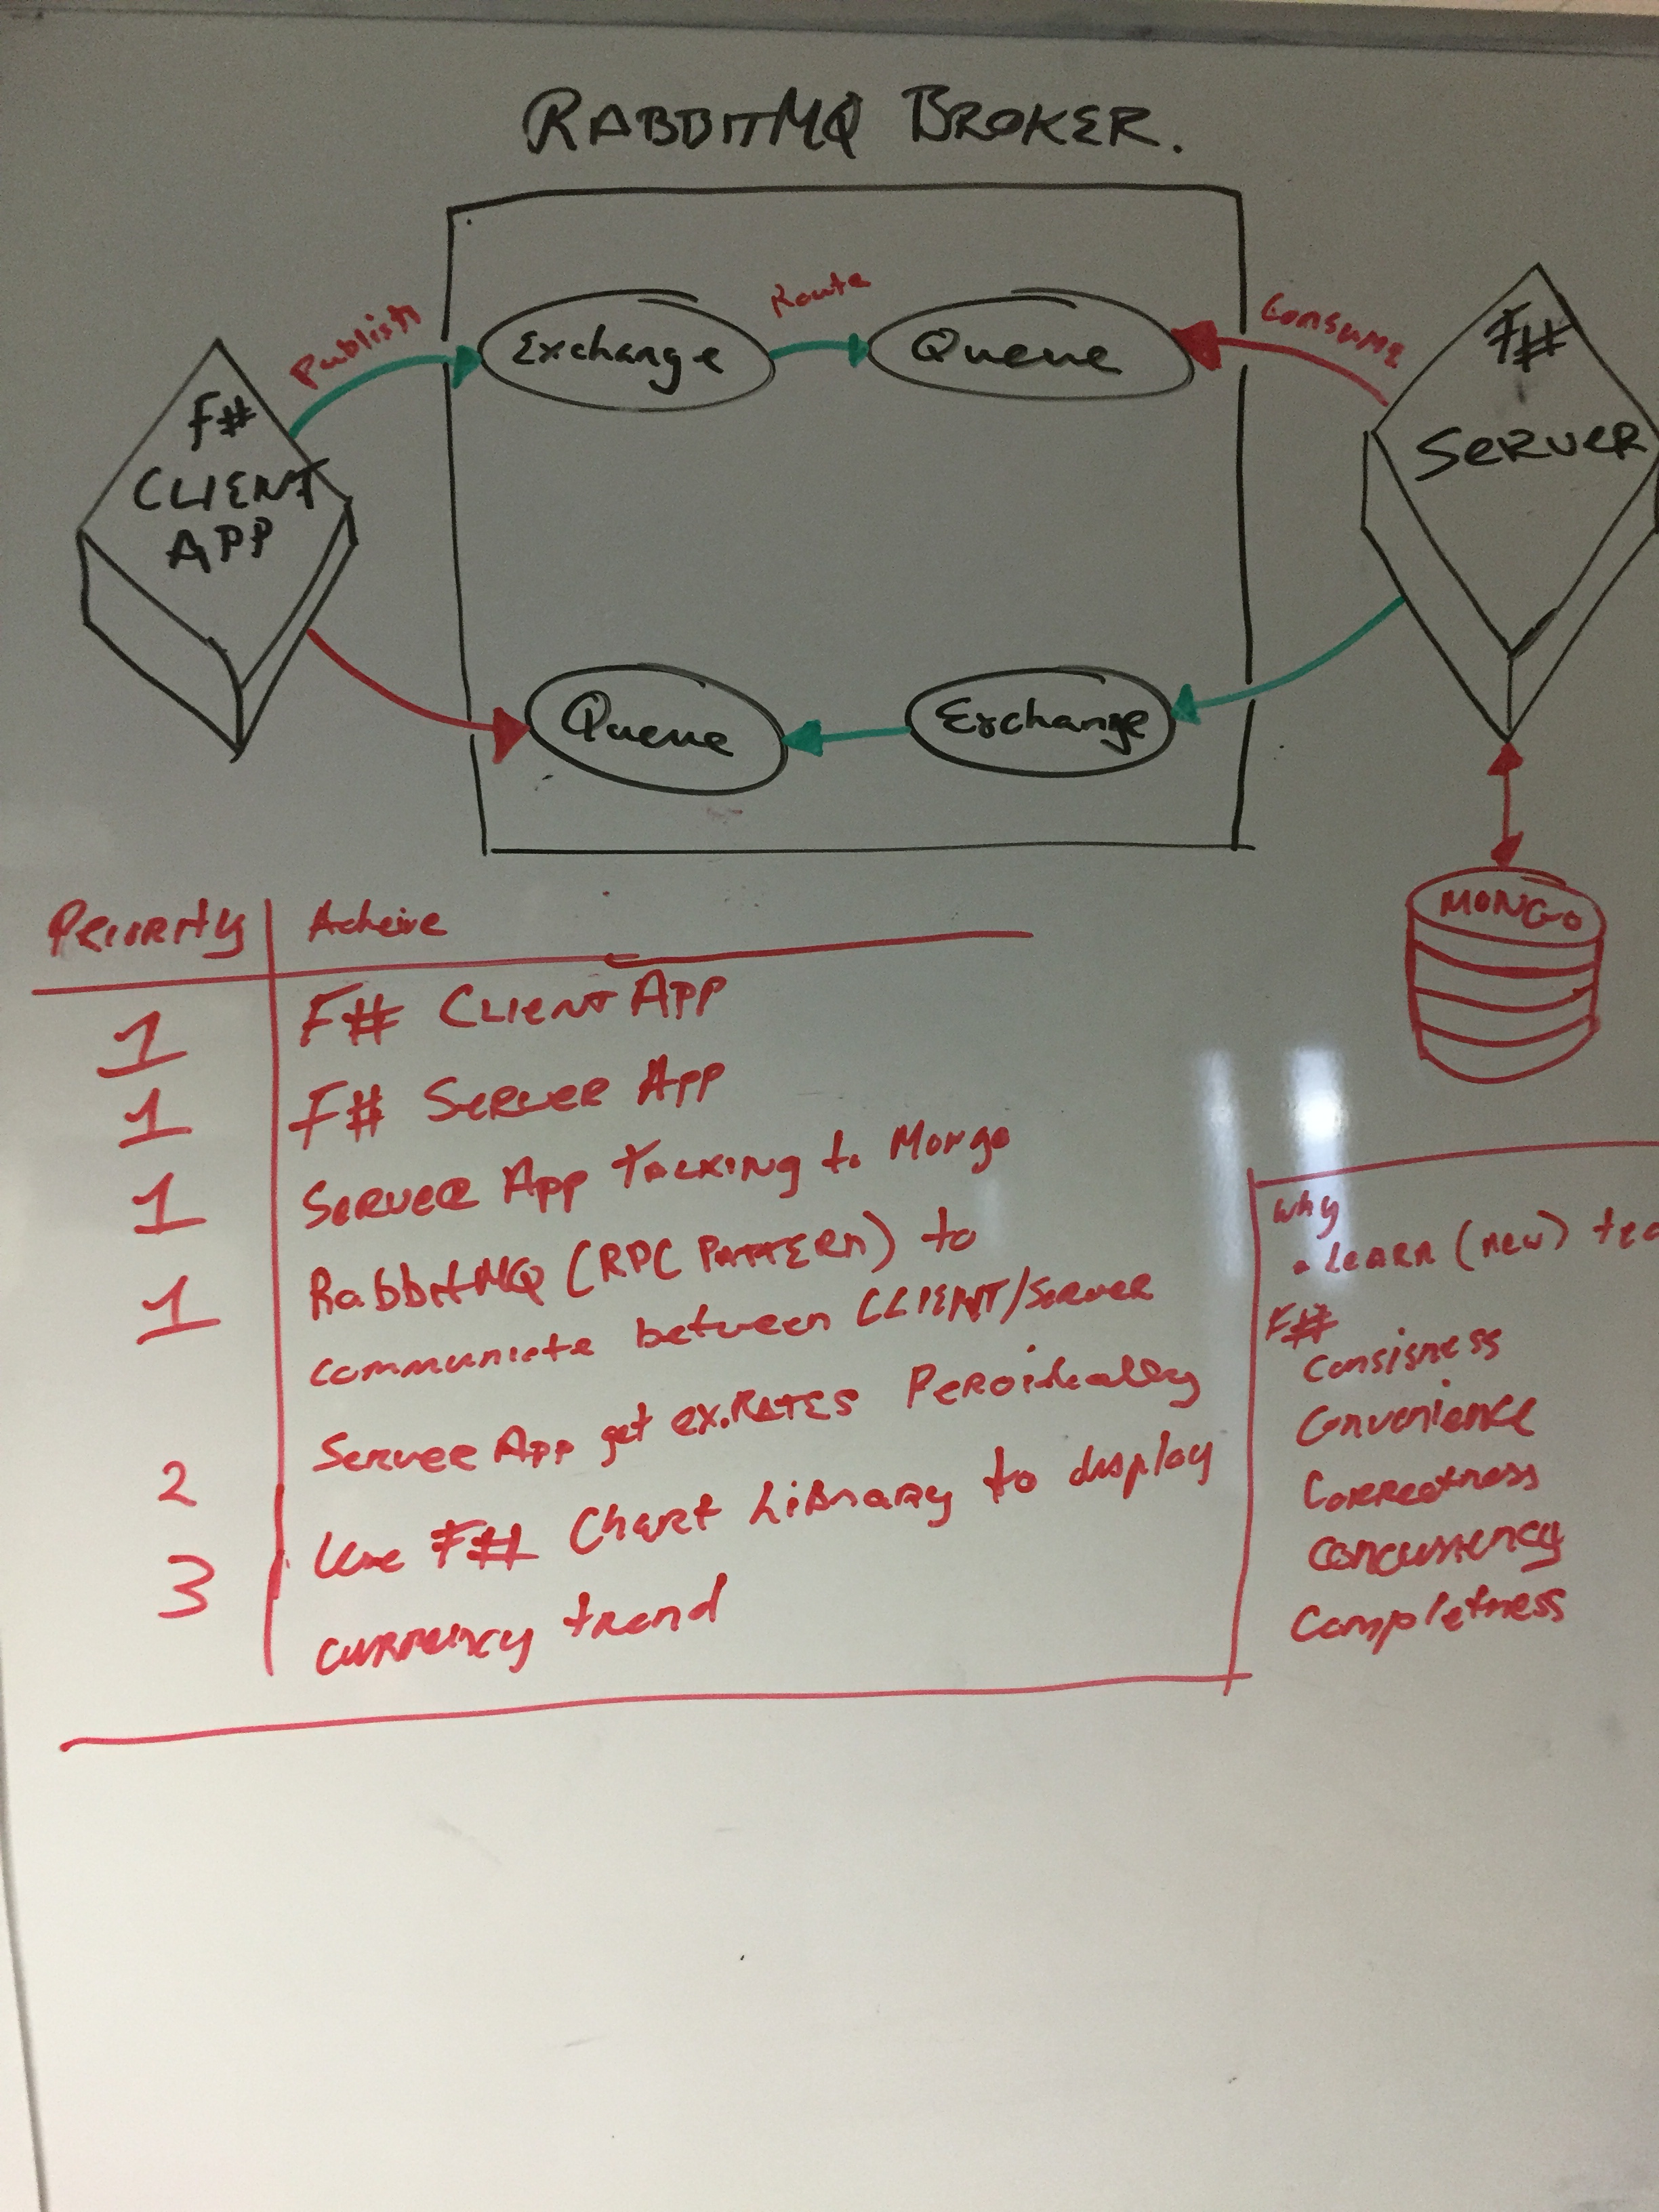 RABBITMQ BROKER.
Publish
Exchange
Route
Queue
Consume
F#
CLIENT
APP
F#
SERVER
Queue
Exchange
MONGO
Priority Acheive
1 F# CLIENT APP
1 F# SERVER APP
1 SERVER APP TALKING to Mongo
1 RabbitMQ (RPC PATTERN) to
communicate between CLIENT/Server
2 Server App get ex.RATES Peroidically
3 Use F# Chart Library to display
currency trend
why
• LEARN (new)
F#
Consisness
Convenience
Correctness
Concurrency
Completness